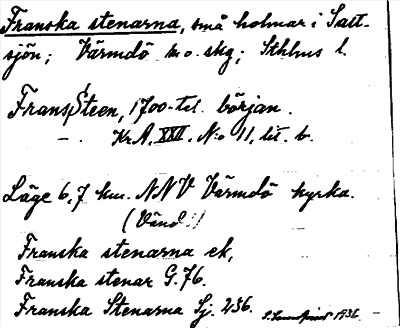 Franska stenarna, små holmar i Salt-
sjön; Värmdö m. o. skg; Sthlms l.
Frans Steen, 1700-tal. början.
Kr.A. XXII. No 11, lit. b.
Läge 6,7 km. NNV Värmdö kyrka.
(Vänd!)
Franska stenarna ek,
Franska stenar G.76.
Franska Stenarna Sj. 236.
1936